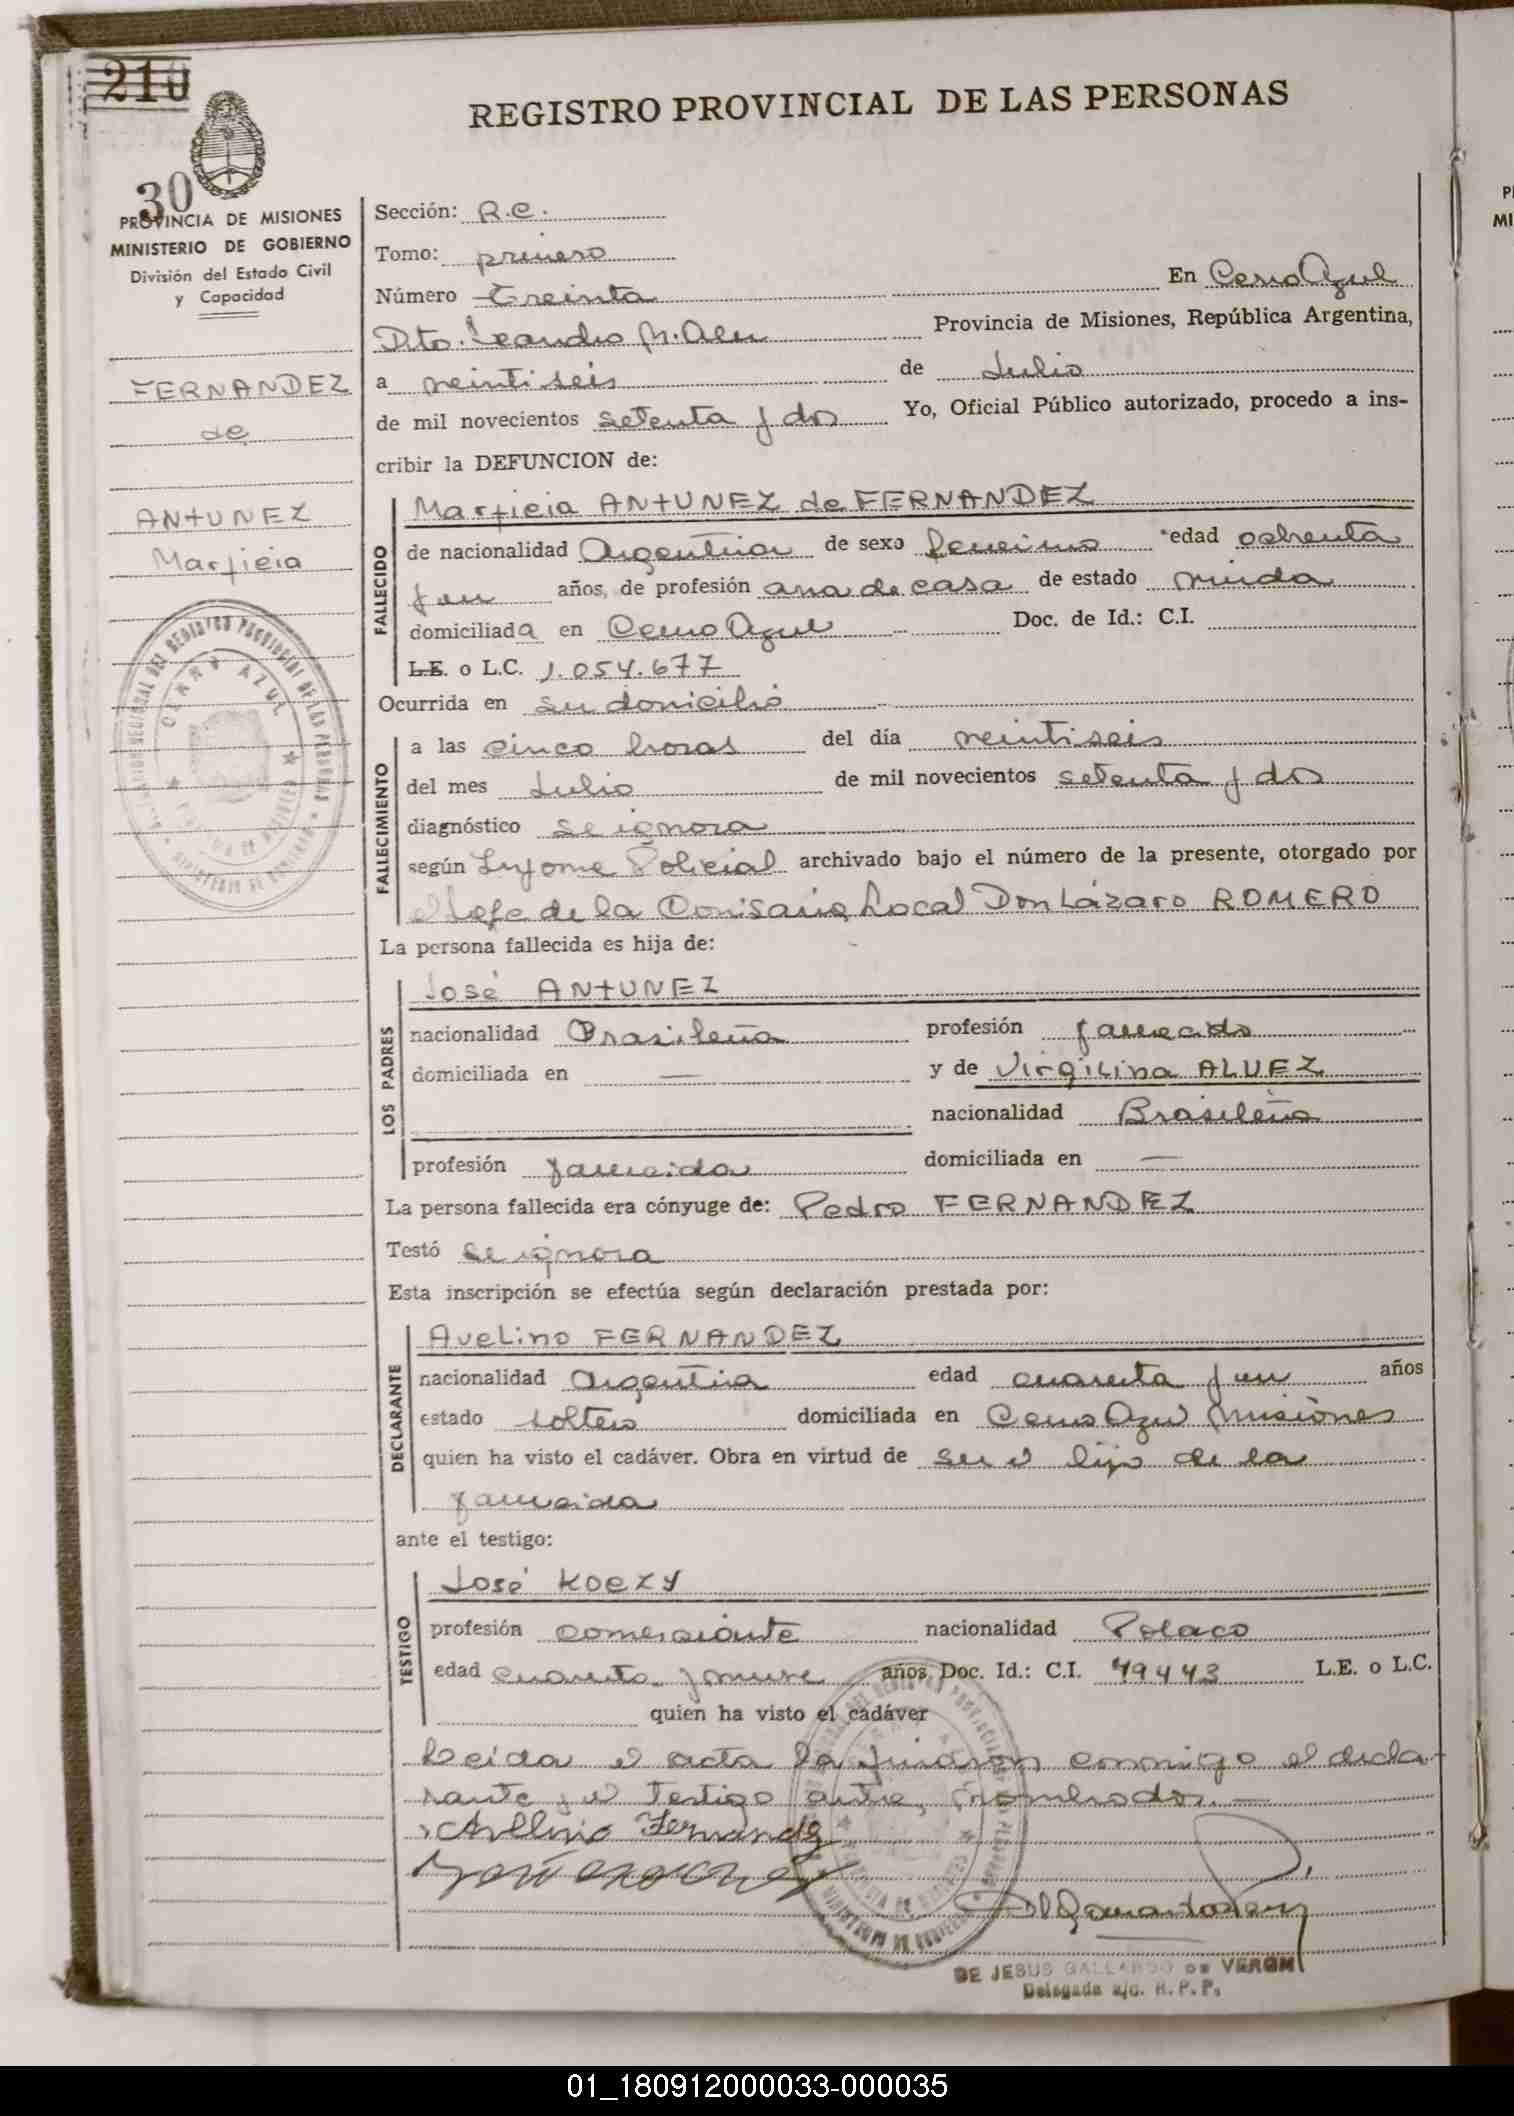 210
30
PROVINCIA DE MISIONES
MINISTERIO DE GOBIERNO
División del Estado Civil
y Capacidad
FERNANDEZ
de
ANTUNEZ
Marficia
REGISTRO PROVINCIAL DE LAS PERSONAS
Sección: R.C.
Tomo: primero
Número Treinta En Cerro Azul
Dto. Leandro N. Alem Provincia de Misiones, República Argentina,
a veintiseis de Julio
de mil novecientos setenta y dos Yo, Oficial Público autorizado, procedo a ins-
cribir la DEFUNCION de:
FALLECIDO
Marficia ANTUNEZ de FERNANDEZ
de nacionalidad Argentina de sexo femenino edad ochenta
y un años, de profesión ama de casa de estado viuda
domiciliada en Cerro Azul Doc. de Id.: C.I.
L.E. o L.C. 1.054.677
Ocurrida en su domicilio
FALLECIMIENTO
a las cinco horas del día veintiseis
del mes Julio de mil novecientos setenta y dos
diagnóstico se ignora
según Informe Policial archivado bajo el número de la presente, otorgado por
el Jefe de la Comisaria Local Don Lázaro ROMERO
La persona fallecida es hija de:
LOS PADRES
José ANTUNEZ
nacionalidad Brasileña profesión fallecido
domiciliada en — y de Virgilina ALVEZ
nacionalidad Brasileña
profesión fallecida domiciliada en —
La persona fallecida era cónyuge de: Pedro FERNANDEZ
Testó se ignora
Esta inscripción se efectúa según declaración prestada por:
DECLARANTE
Avelino FERNANDEZ
nacionalidad Argentina edad cuarenta y un años
estado soltero domiciliada en Cerro Azul Misiones
quien ha visto el cadáver. Obra en virtud de ser el hijo de la
fallecida
ante el testigo:
TESTIGO
José KOEZY
profesión comerciante nacionalidad Polaco
edad cuarenta y nueve años, Doc. Id.: C.I. 49443 L.E. o L.C.
quien ha visto el cadáver
Leida el acta la firmaron conmigo el decla-
rante y el testigo antes nombrados. —
Avelino Fernandez
DE JESUS GALLARDO DE VERON
Delegada a/c. R. P. P.
01_180912000033-000035